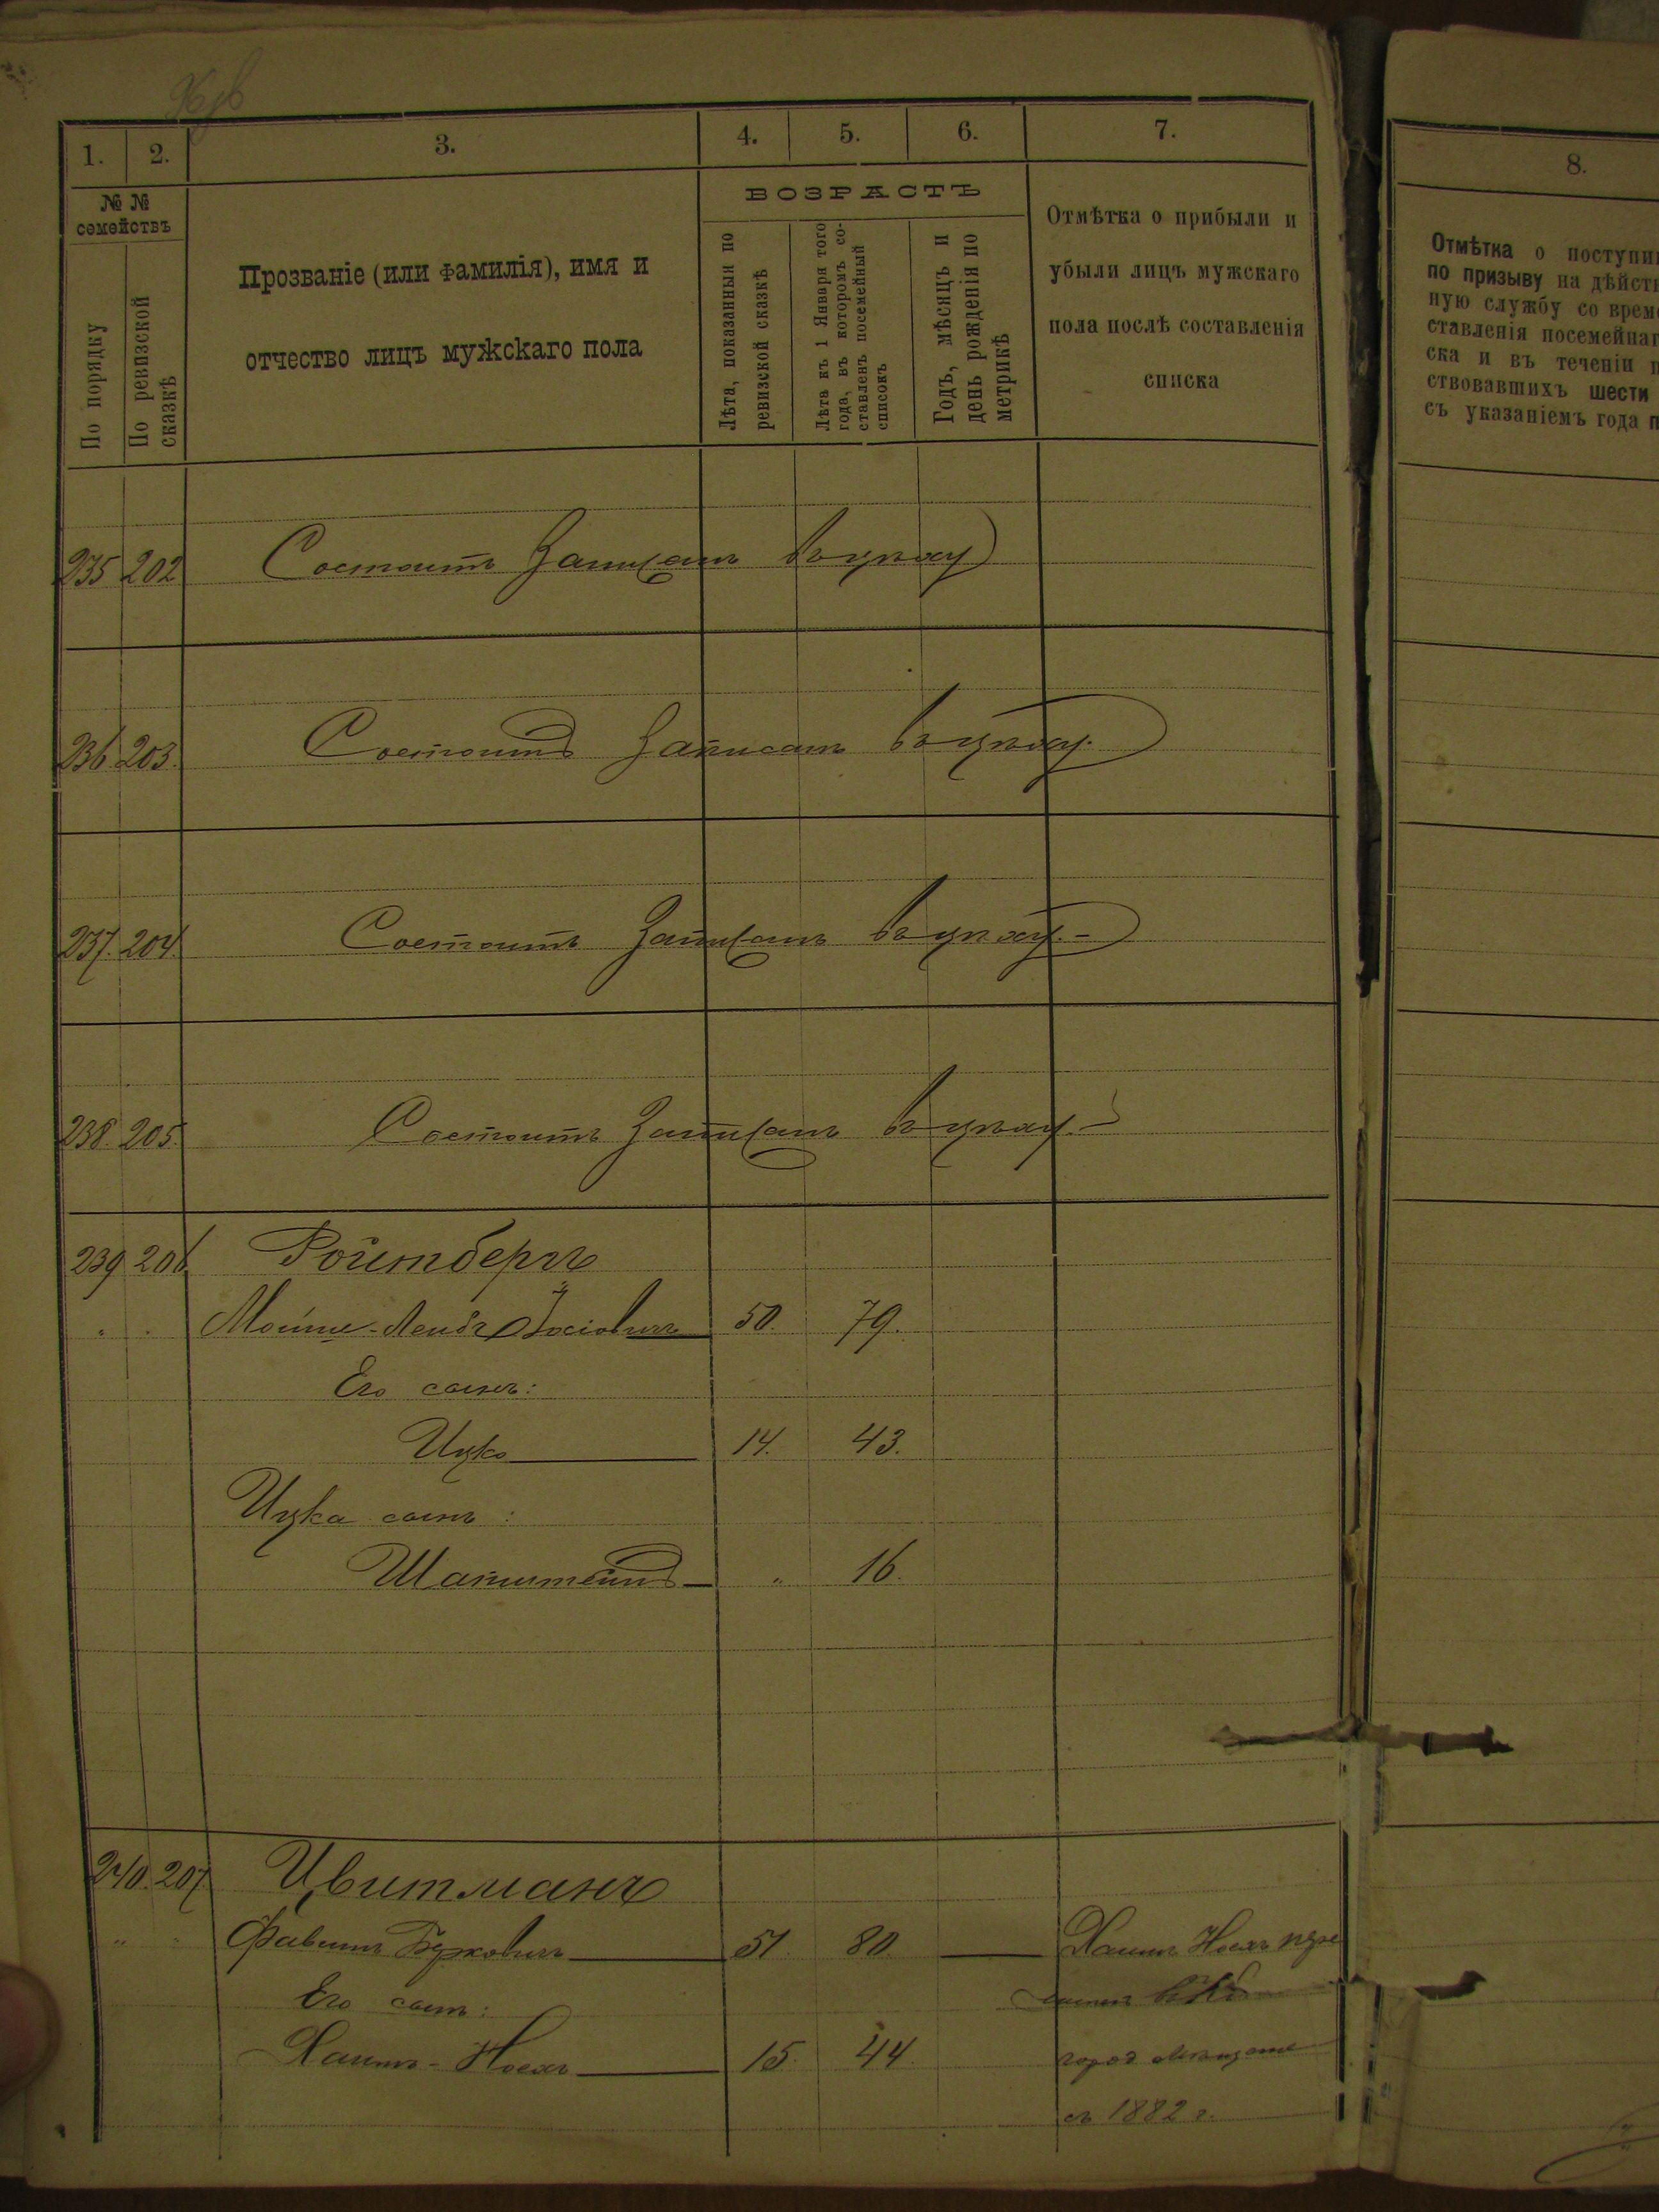 1. 2. 3. 4. 5. 6. 7.
8.
№ №
семействъ
По порядку
По ревизской
сказкѣ
Прозваніе (или фамилія), имя и
отчество лицъ мужскаго пола
ВОЗРАСТЪ
Лѣта, показанныя по
ревизской сказкѣ
Лѣта къ 1 Января того
года, въ которомъ со-
ставленъ посемейный
списокъ
Годъ, мѣсяцъ и
день рожденія по
метрикѣ
Отмѣтка о прибыли и
убыли лицъ мужскаго
пола послѣ составленія
списка
Отмѣтка о поступи
по призыву на дѣйст
ную службу со врем
ставленія посемейнаг
ска и въ теченіи п
ствовавшихъ шести
съ указаніемъ года п
235 202 Состоитъ Записанъ въ цѣху
236 203. Состоитъ Записанъ въ цѣху.
237. 204. Состоитъ Записанъ въ цѣху.-
238. 205. Состоитъ Записанъ въ цѣху.-
239 206. Ройтбергъ
" . Мойше-Лейбъ Іосіовичъ 50. 79.
Его сынъ:
Ицко 14. 43.
Ицка сынъ:
" 16.
240. 207. Цвитманъ
" . Фавишъ Берковичъ 51. 80. Хаимъ Носхъ
Его сынъ:
Хаимъ-Носхъ 15. 44.
город мѣщане
съ 1882 г.